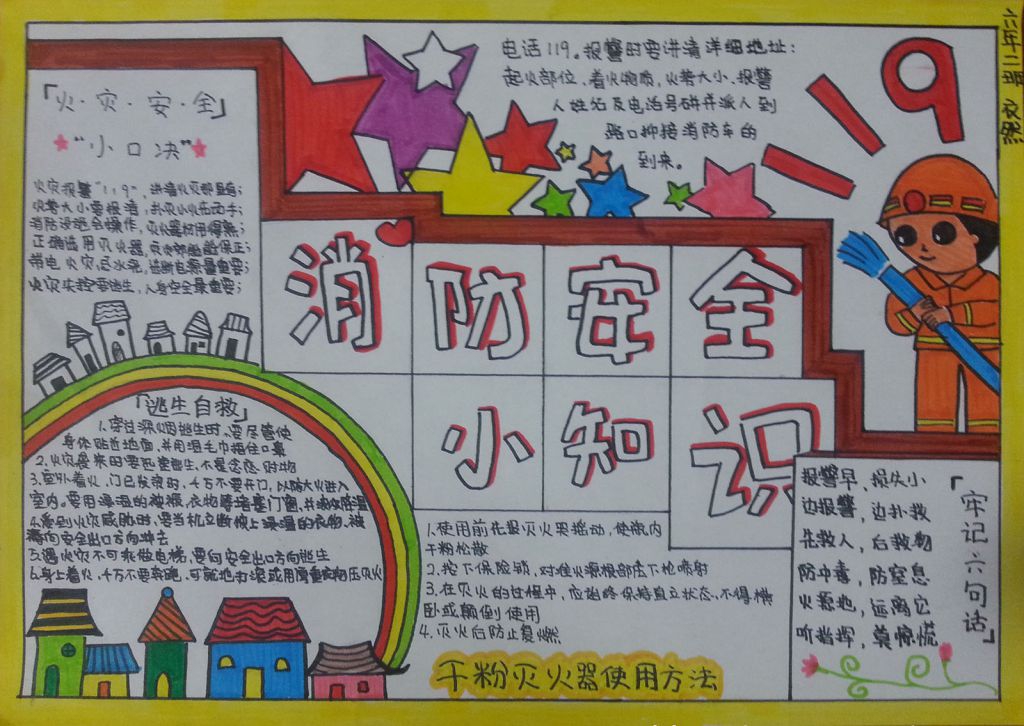 「火·灾·安·全」
"小口决"
火灾报警"119"，讲清火灾部位；
消防设施会操作，灭火器材用得熟；
正确选用灭火器，
带电火灾忌水浇，
火灾失控要逃生，人身安全最重要；
电话119。报警时要讲清详细地址：
起火部位、着火物质，火势大小、报警
人姓名及电话号码并派人到
路口迎接消防车的
到来。
119
六年二班
消防安全
小知识
「逃生自救」
1.穿过浓烟逃生时，要尽管使
身体贴近地面，并用湿毛巾捂住口鼻
2.火灾袭来时要迅速逃生，不是念恋财物
3.室外着火，门已发烫时，千万不要开门，以防大火进入
室内。要用浸湿的被褥、衣物等堵塞门窗，并泼水降温
4.受到火灾威胁时，要当机立断披上浸湿的衣物、被
褥向安全出口方向冲去
5.遇火灾不可乘做电梯，要向安全出口方向逃生
6.身上着火，千万不要奔跑，可就地打滚或用厚重衣物压灭火
1.使用前先把灭火器摇动，使瓶内
干粉松散
2.按下保险销，对准火源根部压下枪喷射
3.在灭火的过程中，应始终保持直立状态，不得横
卧或颠倒使用
4.灭火后防止复燃
干粉灭火器使用方法
「牢记六句话」
报警早，损失小
边报警，边扑救
先救人，后救物
防中毒，防窒息
火源地，远离它
听指挥，莫惊慌